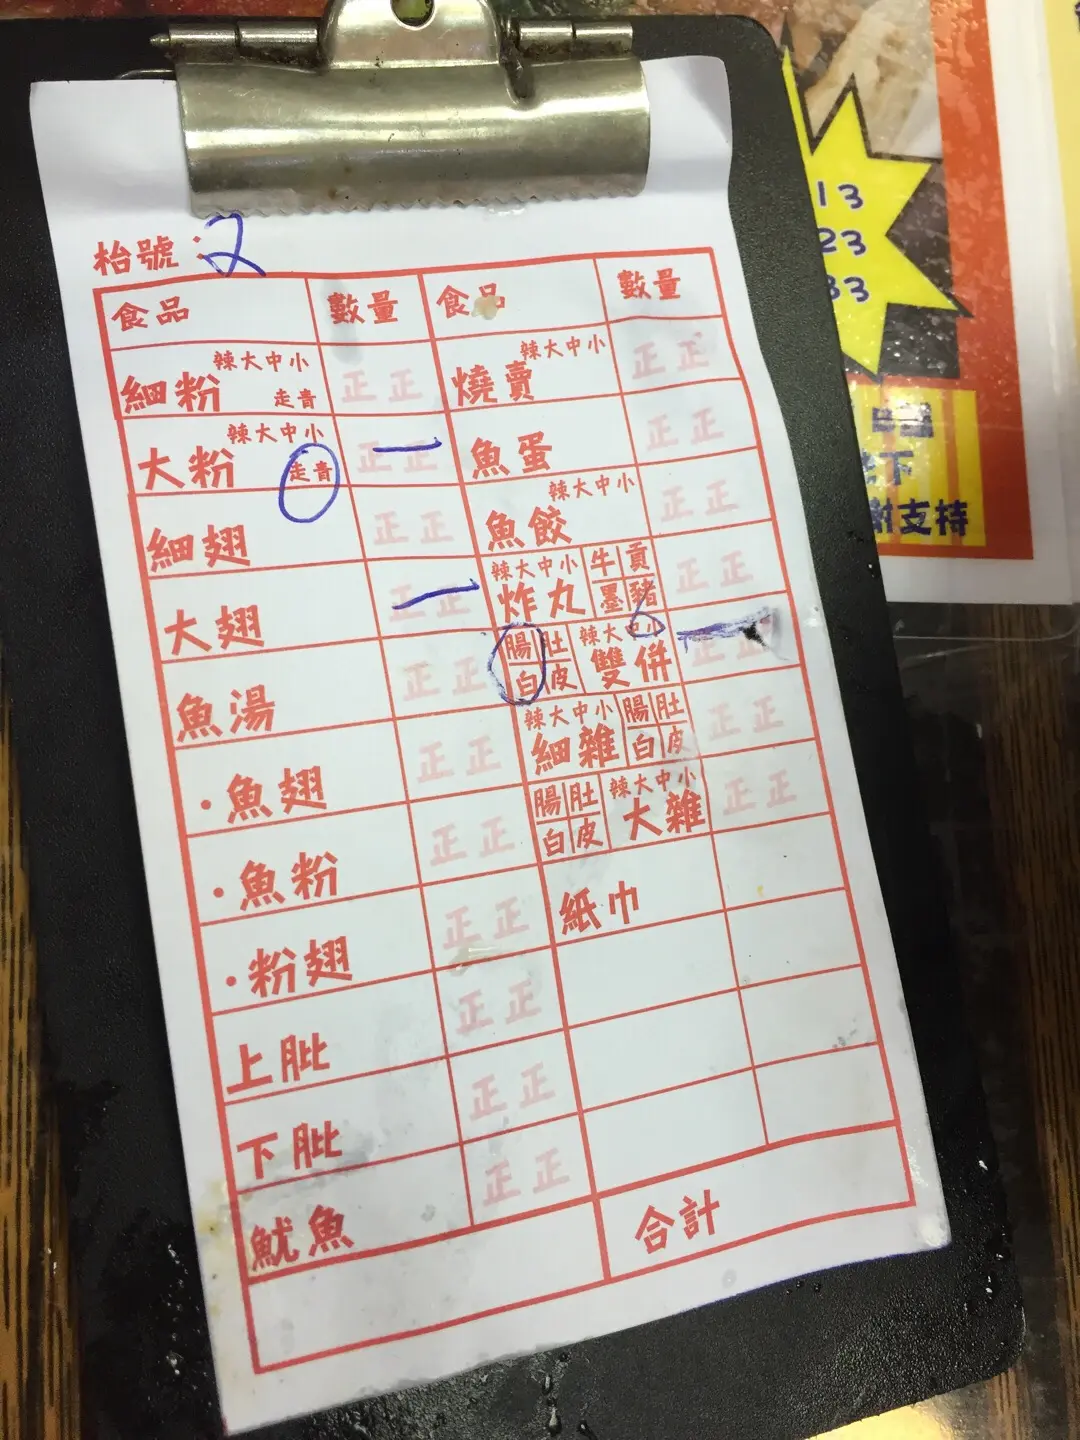 枱號：2
食品 數量 食品 數量
細粉 辣大中小 走青 正正
燒賣 辣大中小 正正
大粉 辣大中小 走青 正正
魚蛋 正正
細翅 正正
魚餃 辣大中小 正正
大翅 正正
辣大中小 炸丸 牛 貢 墨 豬 正正
魚湯 正正
腸 肚 白 皮 辣大中小 雙併 正正
·魚翅 正正
辣大中小 細雜 腸 肚 白 皮 正正
·魚粉 正正
腸 肚 白 皮 辣大中小 大雜 正正
·粉翅 正正
紙巾
上肶 正正
下肶 正正
魷魚 正正
合計
13
23
33
下
謝支持